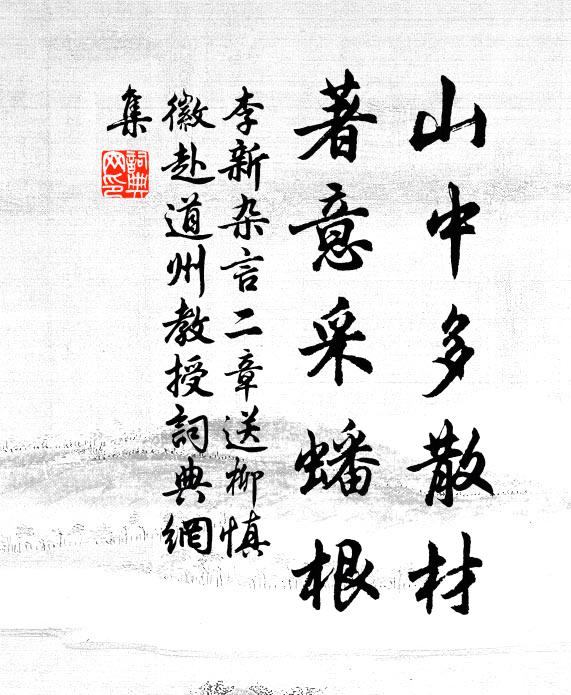 山中多散材
著意采蟠根
李新杂言二章送柳慎
徽赴道州教授詞典網
集
詞典
网印